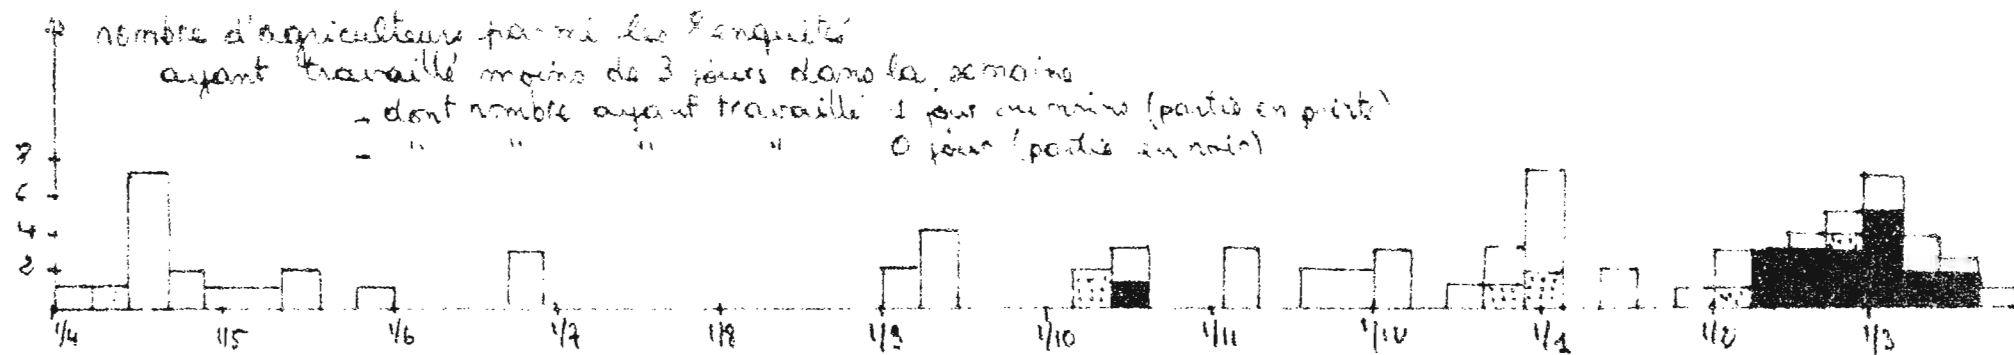 nombre d'agriculteurs parmi les 8 enquêtés
ayant travaillé moins de 3 jours dans la semaine
- dont nombre ayant travaillé 1 jour ou moins (partie en pointé)
- " " " " 0 jour (partie en noir)
8
6
4
2
1/4 1/5 1/6 1/7 1/8 1/9 1/10 1/11 1/12 1/1 1/2 1/3